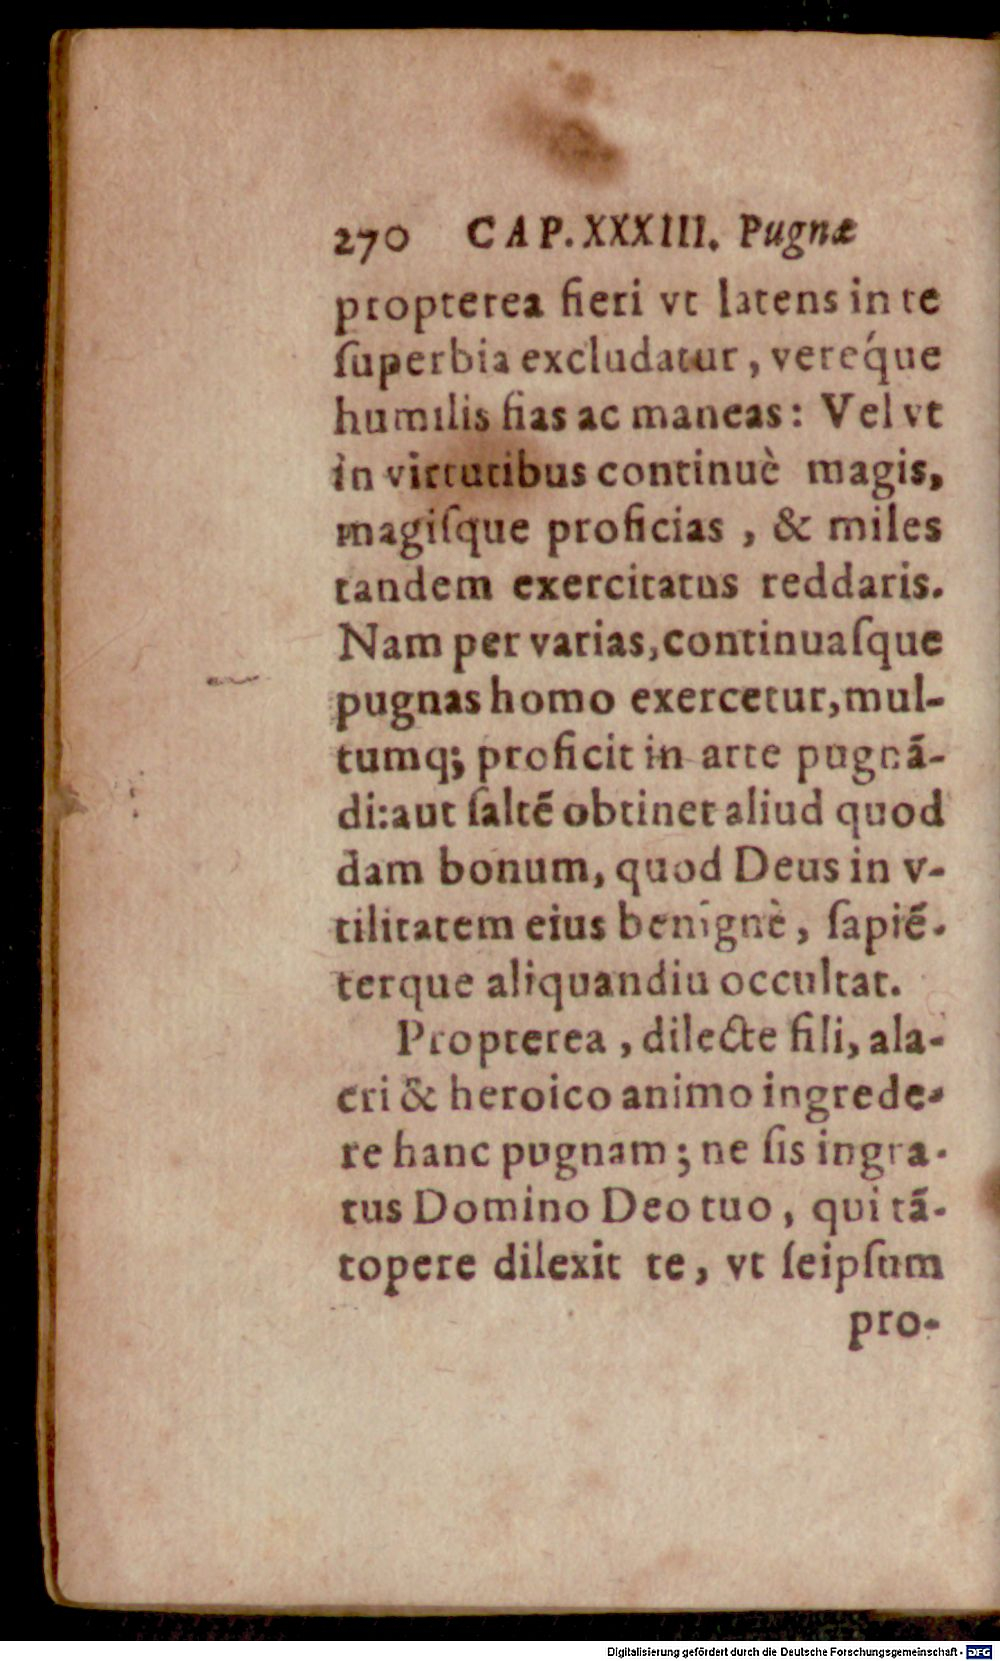 270 CAP. XXXIII. Pugnæ
propterea fieri vt latens in te
ſuperbia excludatur, vereq́ue
humilis fias ac maneas: Vel vt
in virtutibus continuè magis,
magiſque proficias, & miles
tandem exercitatus reddaris.
Nam per varias, continuaſque
pugnas homo exercetur, mul-
tumq; proficit in arte pugnã-
di: aut ſaltẽ obtinet aliud quod
dam bonum, quod Deus in v-
tilitatem eius benignè, ſapiẽ-
terque aliquandiu occultat.
Propterea, dilecte fili, ala-
cri & heroico animo ingrede-
re hanc pugnam; ne ſis ingra-
tus Domino Deo tuo, qui tã-
topere dilexit te, vt ſeipſum
pro-
Digitalisierung gefördert durch die Deutsche Forschungsgemeinschaft - DFG